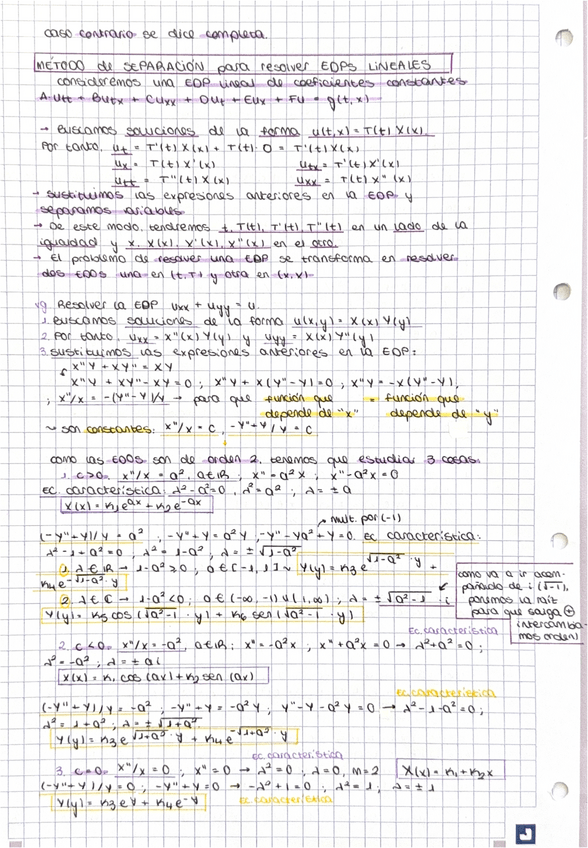 caso contrario se dice completa.
MÉTODO de SEPARACIÓN para resolver EDPs LINEALES
consideremos una EDP lineal de coeficientes constantes
A·Utt + BUtx + CUxx + DUt + EUx + FU = g(t,x)
→ Buscamos soluciones de la forma u(t,x) = T(t) X(x).
Por tanto, ut = T'(t) X(x) + T(t)·0 = T'(t) X(x)
ux = T(t) X'(x) utx = T'(t) X'(x)
utt = T''(t) X(x) uxx = T(t) X''(x)
→ sustituimos las expresiones anteriores en la EDP y
separamos variables
→ De este modo, tendremos t, T(t), T'(t), T''(t) en un lado de la
igualdad y x, X(x), X'(x), X''(x) en el otro.
→ El problema de resolver una EDP se transforma en resolver
dos EDOs una en (t,T) y otra en (x,X).
vg Resolver la EDP uxx + uyy = u.
1. Buscamos soluciones de la forma u(x,y) = X(x) Y(y)
2. Por tanto, uxx = X''(x) Y(y) y uyy = X(x) Y''(y)
3. sustituimos las expresiones anteriores en la EDP:
X''Y + XY'' = XY
X''Y + XY'' - XY = 0 ; X''Y + X(Y''-Y) = 0 ; X''Y = -X(Y''-Y),
; X''/X = -(Y''-Y)/Y → para que función que = función que
depende de "x" depende de "y"
~ son constantes: X''/X = C, -Y''+Y/Y = C
como las EDOs son de orden 2, tenemos que estudiar 3 casos:
1. C>0. X''/X = a², a∈ℝ, X'' = a²X ; X'' - a²X = 0
EC. característica: λ²-a²=0, λ²=a² ; λ = ± a
X(x) = K1e^ax + K2e^-ax
mult. por (-1)
(-Y''+Y)/Y = a², -Y''+Y = a²Y, -Y''-Ya²+Y=0. EC característica:
λ²-1+a²=0, λ²=1-a², λ=±√1-a²
1. λ∈ℝ → 1-a²≥0, a∈[-1,1] ~ Y(y) = K3e^√1-a²·y +
K4e^-√1-a²·y
2. λ∈ℂ → 1-a²<0, a∈(-∞,-1)∪(1,∞), λ=±√a²-1 · i
como va a ir acom-
pañado de i (√-1),
ponemos la raíz
para que salga ⊕
(intercamba-
mos orden)
Y(y) = K5 cos (√a²-1 · y) + K6 sen (√a²-1 · y)
EC característica
2. C<0. X''/X = -a², a∈ℝ; X'' = -a²X, X''+a²X = 0 → λ²+a²=0 ;
λ²=-a², λ=± ai
X(x) = K1 cos (ax) + K2 sen (ax)
ec. característica
(-Y''+Y)/Y = -a² ; -Y''+Y = -a²Y, Y''-Y-a²Y = 0 → λ²-1-a²=0 ;
λ² = 1+a², λ = ± √1+a²
Y(y) = K3e^√1+a²·y + K4e^-√1+a²·y
ec característica
3. C=0. X''/X = 0 ; X'' = 0 → λ²=0, λ=0, m=2 X(x) = K1 + K2x
(-Y''+Y)/Y = 0 ; -Y''+Y = 0 → -λ²+1=0 ; λ²=1, λ=±1
Y(y) = K3e^y + K4e^-y ec característica